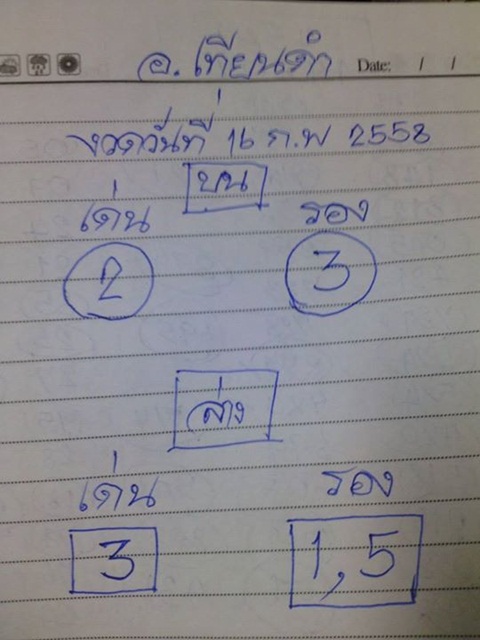 อ.เทียนดำ Date: / /
งวดวันที่ 16 ก.พ 2558
บน
เด่น รอง
2 3
ล่าง
เด่น รอง
3 1,5